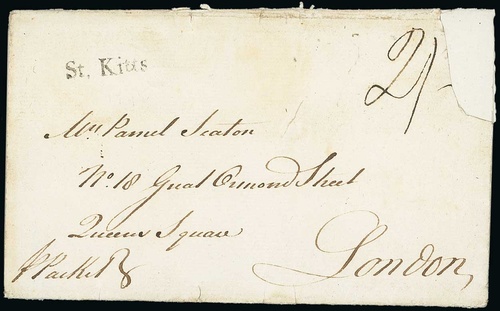 St. Kitts
2/-
Mrs Parnel Seaton
No. 18 Great Ormond Street
Queens Square
London,
Packet